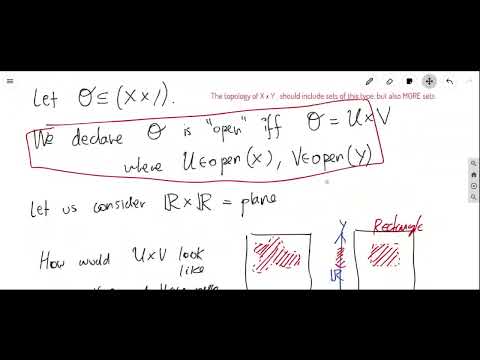 Let O ⊆ (X×Y).
The topology of X x Y should include sets of this type, but also MORE sets
We declare O is "open" iff O = U×V
where U∈open(X), V∈open(Y)
Let us consider ℝ×ℝ = plane
Rectangle
How would U×V look
like
ℝ